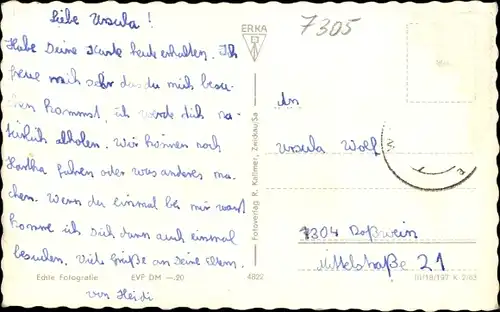 Liebe Ursula!
Habe Deine Karte heute erhalten. Ich
freue mich sehr das du mich besu-
chen kommst, ich werde dich na-
türlich abholen. Wir können nach
Hartha fahren oder was anderes ma-
chen. Wenn du einmal bei mir warst
komme ich dich dann auch einmal
besuchen. Viele Grüße an Deine Eltern.
von Heidi
Echte Fotografie EVP DM —.20 4822
ERKA
Fotoverlag R. Kallmer, Zwickau/Sa
7305
An
Ursula Wolf
7304 Roßwein
Mittelstraße 21
III/18/197 K 2/63